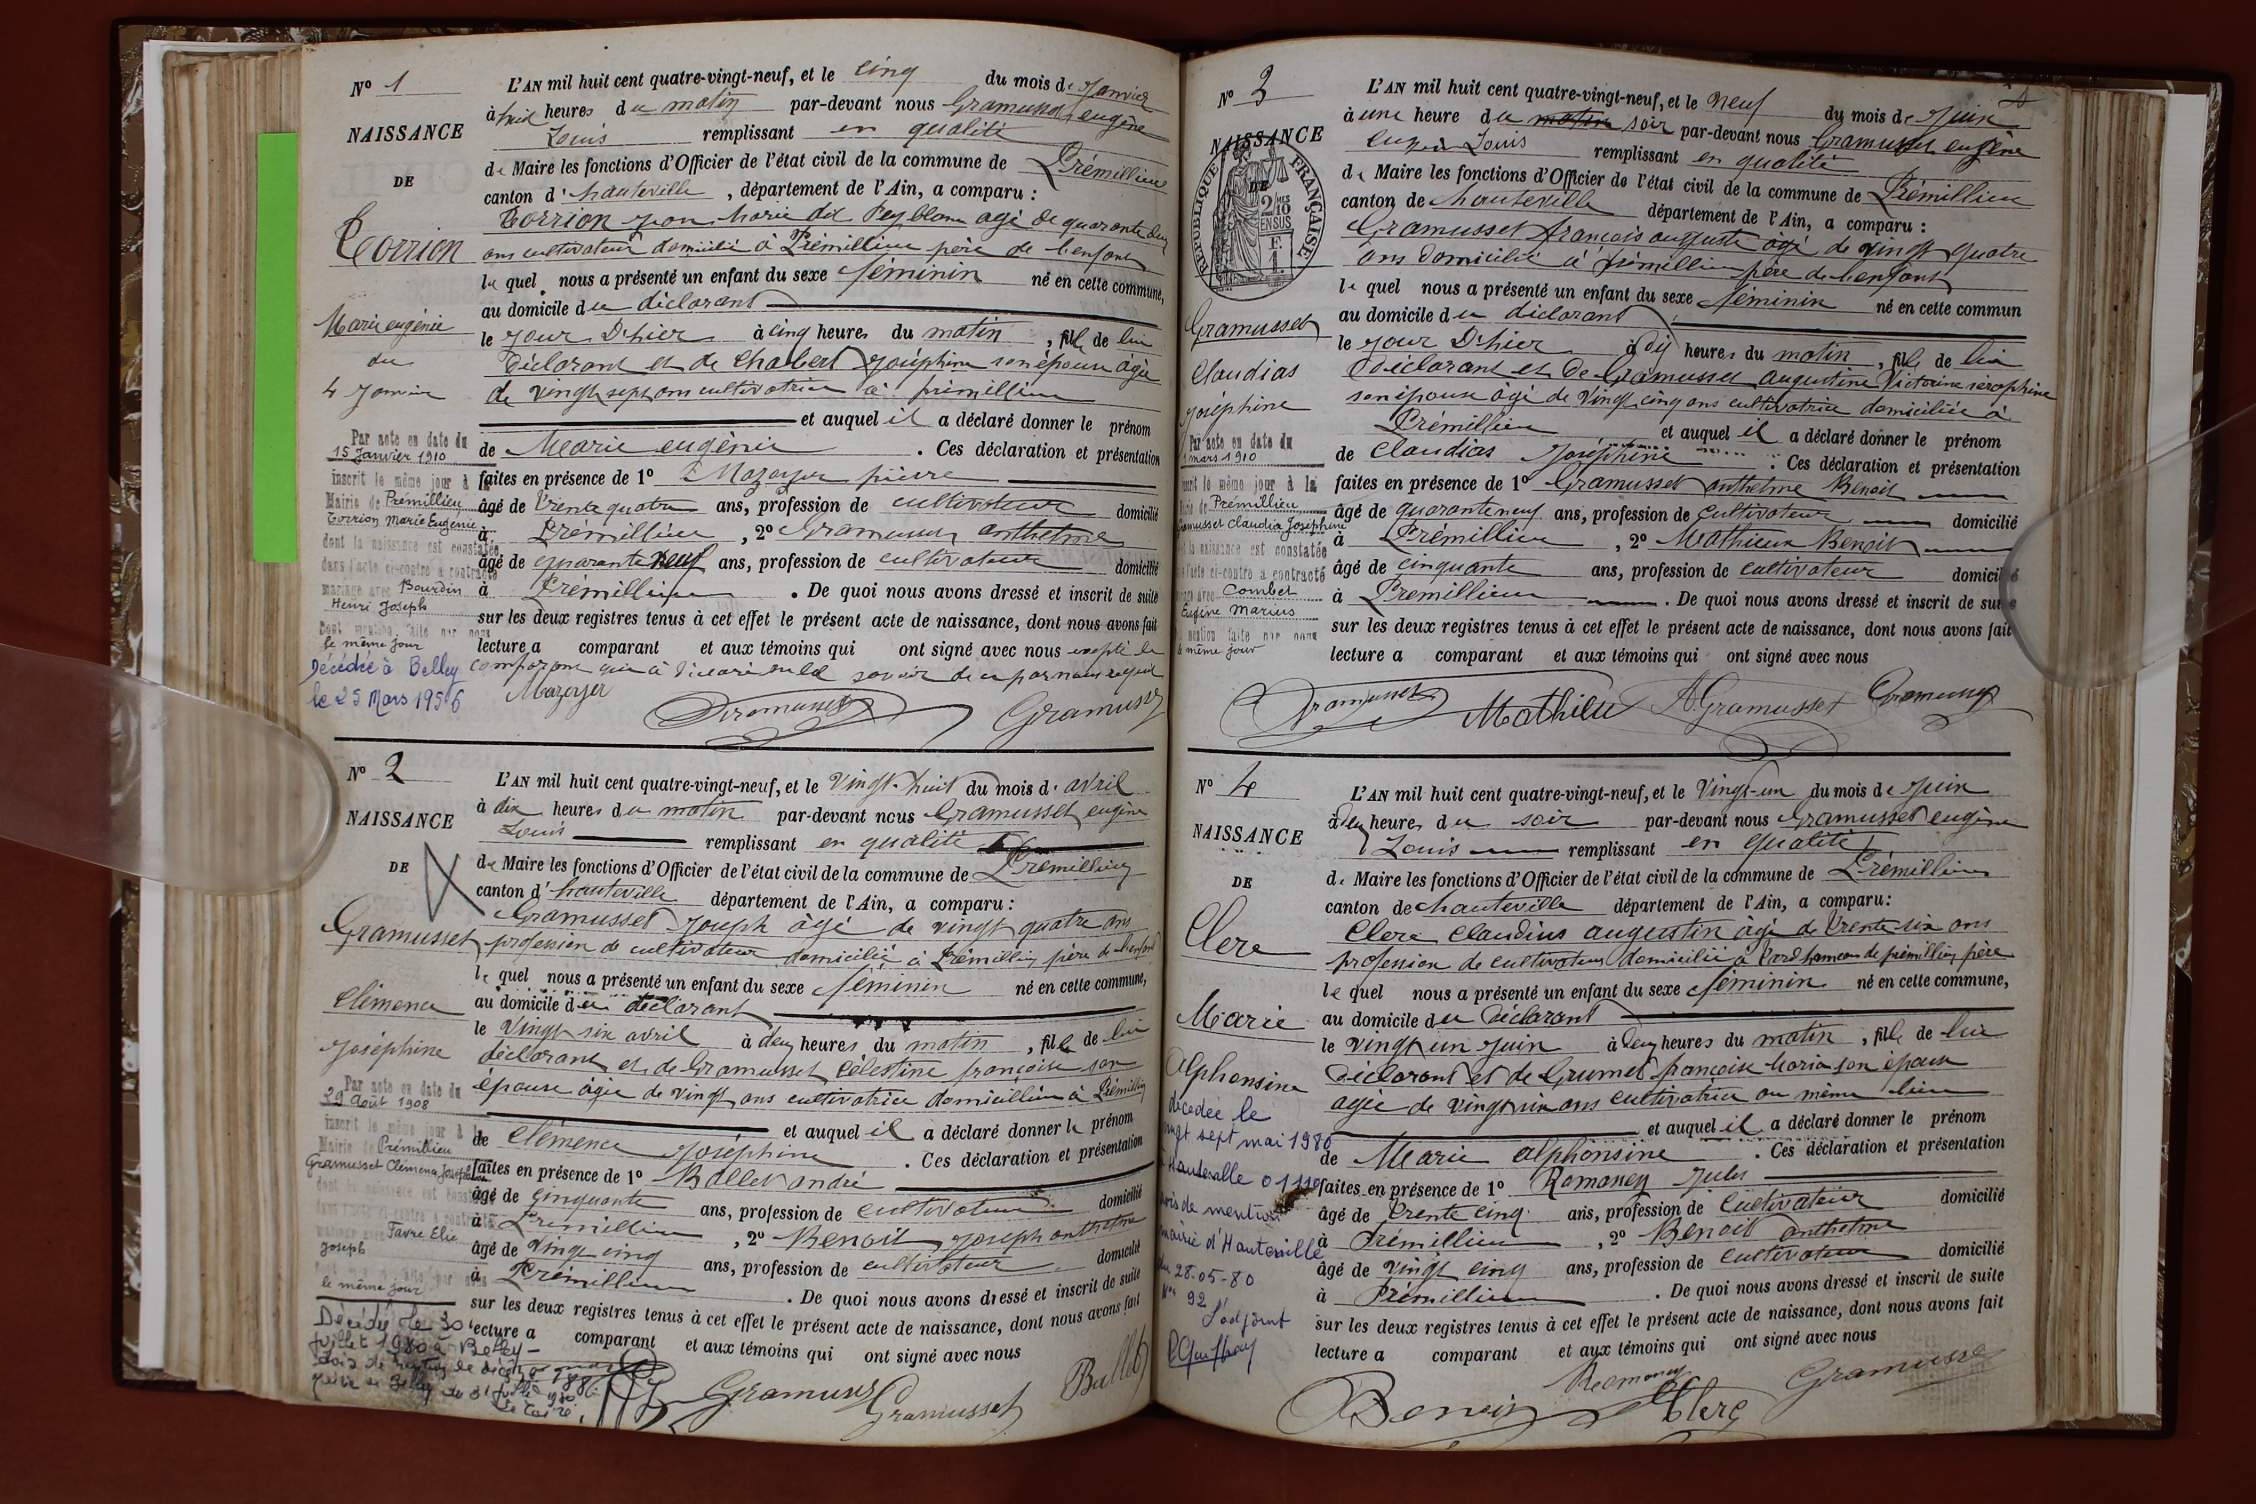 N° 1
NAISSANCE
DE
Corrion
Marie eugénie
du
4 Janvier
Par acte en date du
15 Janvier 1910
inscrit le même jour à la
Mairie de Prémillieu
Corrion Marie Eugénie
dont la naissance est constatée
dans l'acte ci-contre a contracté
mariage avec Bourdin
Henri Joseph
Dont mention faite par nous
le même jour
Décédée à Belley
le 25 Mars 1956
L'AN mil huit cent quatre-vingt-neuf, et le cinq du mois de Janvier
à huit heures du matin par-devant nous Gramusset eugène
Louis remplissant en qualité
de Maire les fonctions d'Officier de l'état civil de la commune de Prémillieu
canton d'hauteville, département de l'Ain, a comparu :
Corrion Jean Marie dit Peyblanc agé de quarante deux
ans cultivateur domicilié à Prémillieu père de l'enfant
le quel nous a présenté un enfant du sexe féminin né en cette commune,
au domicile du déclarant
le jour D'hier à cinq heures du matin, fille de lui
Déclarant et de Chabert Joséphine son épouse âgée
de vingt sept ans cultivatrice à prémillieu
et auquel il a déclaré donner le prénom
de Marie eugénie. Ces déclaration et présentation
faites en présence de 1° Mazoyer pierre
âgé de trente quatre ans, profession de cultivateur domicilié
à Prémillieu, 2° Gramusset anthelme
âgé de quarante neuf ans, profession de cultivateur domicilié
à Prémillieu. De quoi nous avons dressé et inscrit de suite
sur les deux registres tenus à cet effet le présent acte de naissance, dont nous avons fait
lecture a comparant et aux témoins qui ont signé avec nous excepté le
comparant qui à déclaré ne le savoir de ce par nous requis
Mazoyer Gramusset Gramusset
N° 2
NAISSANCE
DE
Gramusset
Clémence
Joséphine
Par acte en date du
29 Août 1908
inscrit le même jour à la
Mairie de Prémillieu
Gramusset Clémence Joséphine
dont la naissance est constatée
dans l'acte ci-contre a contracté
mariage avec Favre Elie
Joseph
Dont mention faite par nous
le même jour
Décédée le 30
juillet 1980 à Belley
L'AN mil huit cent quatre-vingt-neuf, et le vingt-huit du mois d'avril
à dix heures du matin par-devant nous Gramusset eugène
Louis remplissant en qualité
de Maire les fonctions d'Officier de l'état civil de la commune de Prémillieu
canton d'hauteville département de l'Ain, a comparu :
Gramusset Joseph âgé de vingt quatre ans
profession de cultivateur domicilié à Prémillieu père de l'enfant
le quel nous a présenté un enfant du sexe féminin né en cette commune,
au domicile du déclarant
le vingt six avril à deux heures du matin, fille de lui
déclarant et de Gramusset Célestine françoise son
épouse âgée de vingt ans cultivatrice domiciliée à Prémillieu
et auquel il a déclaré donner le prénom
de Clémence Joséphine. Ces déclaration et présentation
faites en présence de 1° Ballet andré
âgé de cinquante ans, profession de cultivateur domicilié
à Prémillieu, 2° Benoit Joseph anthelme
âgé de vingt cinq ans, profession de cultivateur domicilié
à Prémillieu. De quoi nous avons dressé et inscrit de suite
sur les deux registres tenus à cet effet le présent acte de naissance, dont nous avons fait
lecture a comparant et aux témoins qui ont signé avec nous
Gramusset Gramusset Ballet
N° 3
NAISSANCE
DE
RÉPUBLIQUE FRANÇAISE
2/10 MES
EN SUS
F.
1.
Gramusset
Claudias
Joséphine
Par acte en date du
mars 1910
inscrit le même jour à la
Mairie de Prémillieu
Gramusset Claudia Joséphine
dont la naissance est constatée
dans l'acte ci-contre a contracté
mariage avec Combet
Eugène Marius
Dont mention faite par nous
le même jour
L'AN mil huit cent quatre-vingt-neuf, et le neuf du mois de Juin
à une heure du matin soir par-devant nous Gramusset eugène
eugène Louis remplissant en qualité
de Maire les fonctions d'Officier de l'état civil de la commune de Prémillieu
canton de hauteville département de l'Ain, a comparu :
Gramusset françois auguste âgé de vingt quatre
ans domicilié à prémillieu père de l'enfant
le quel nous a présenté un enfant du sexe féminin né en cette commun
au domicile du déclarant
le jour D'hier à dix heures du matin, fille de lui
déclarant et de Gramusset augustine Victorine séraphine
son épouse âgé de vingt cinq ans cultivatrice domiciliée à
Prémillieu et auquel il a déclaré donner le prénom
de Claudias Joséphine. Ces déclaration et présentation
faites en présence de 1° Gramusset anthelme Benoit
âgé de quarante neuf ans, profession de cultivateur domicilié
à Prémillieu, 2° Mathieu Benoit
âgé de cinquante ans, profession de cultivateur domicilié
à Prémillieu. De quoi nous avons dressé et inscrit de suite
sur les deux registres tenus à cet effet le présent acte de naissance, dont nous avons fait
lecture a comparant et aux témoins qui ont signé avec nous
Gramusset Mathieu A. Gramusset Gramusset
N° 4
NAISSANCE
DE
Clerc
Marie
Alphonsine
décédée le
vingt sept mai 1980
Hauteville 01110
avis de mention
mairie d'Hauteville
du 28-05-80
N° 92
L'adjoint
L'AN mil huit cent quatre-vingt-neuf, et le Vingt-un du mois de Juin
à deux heures du soir par-devant nous Gramusset eugène
Louis remplissant en qualité
de Maire les fonctions d'Officier de l'état civil de la commune de Prémillieu
canton de hauteville département de l'Ain, a comparu :
Clerc Claudius augustin âgé de trente-six ans
profession de cultivateur domicilié à hameau de prémillieu père
le quel nous a présenté un enfant du sexe féminin né en cette commune,
au domicile du déclarant
le vingt un juin à deux heures du matin, fille de lui
Déclarant et de Grumet françoise Maria son épouse
agée de vingt six ans cultivatrice au même lieu
et auquel il a déclaré donner le prénom
de Marie alphonsine. Ces déclaration et présentation
faites en présence de 1° Romaney Jules
âgé de trente cinq ans, profession de cultivateur domicilié
à Prémillieu, 2° Benoit anthelme
âgé de vingt cinq ans, profession de cultivateur domicilié
à Prémillieu. De quoi nous avons dressé et inscrit de suite
sur les deux registres tenus à cet effet le présent acte de naissance, dont nous avons fait
lecture a comparant et aux témoins qui ont signé avec nous
Benoit Romaney Clerc Gramusset